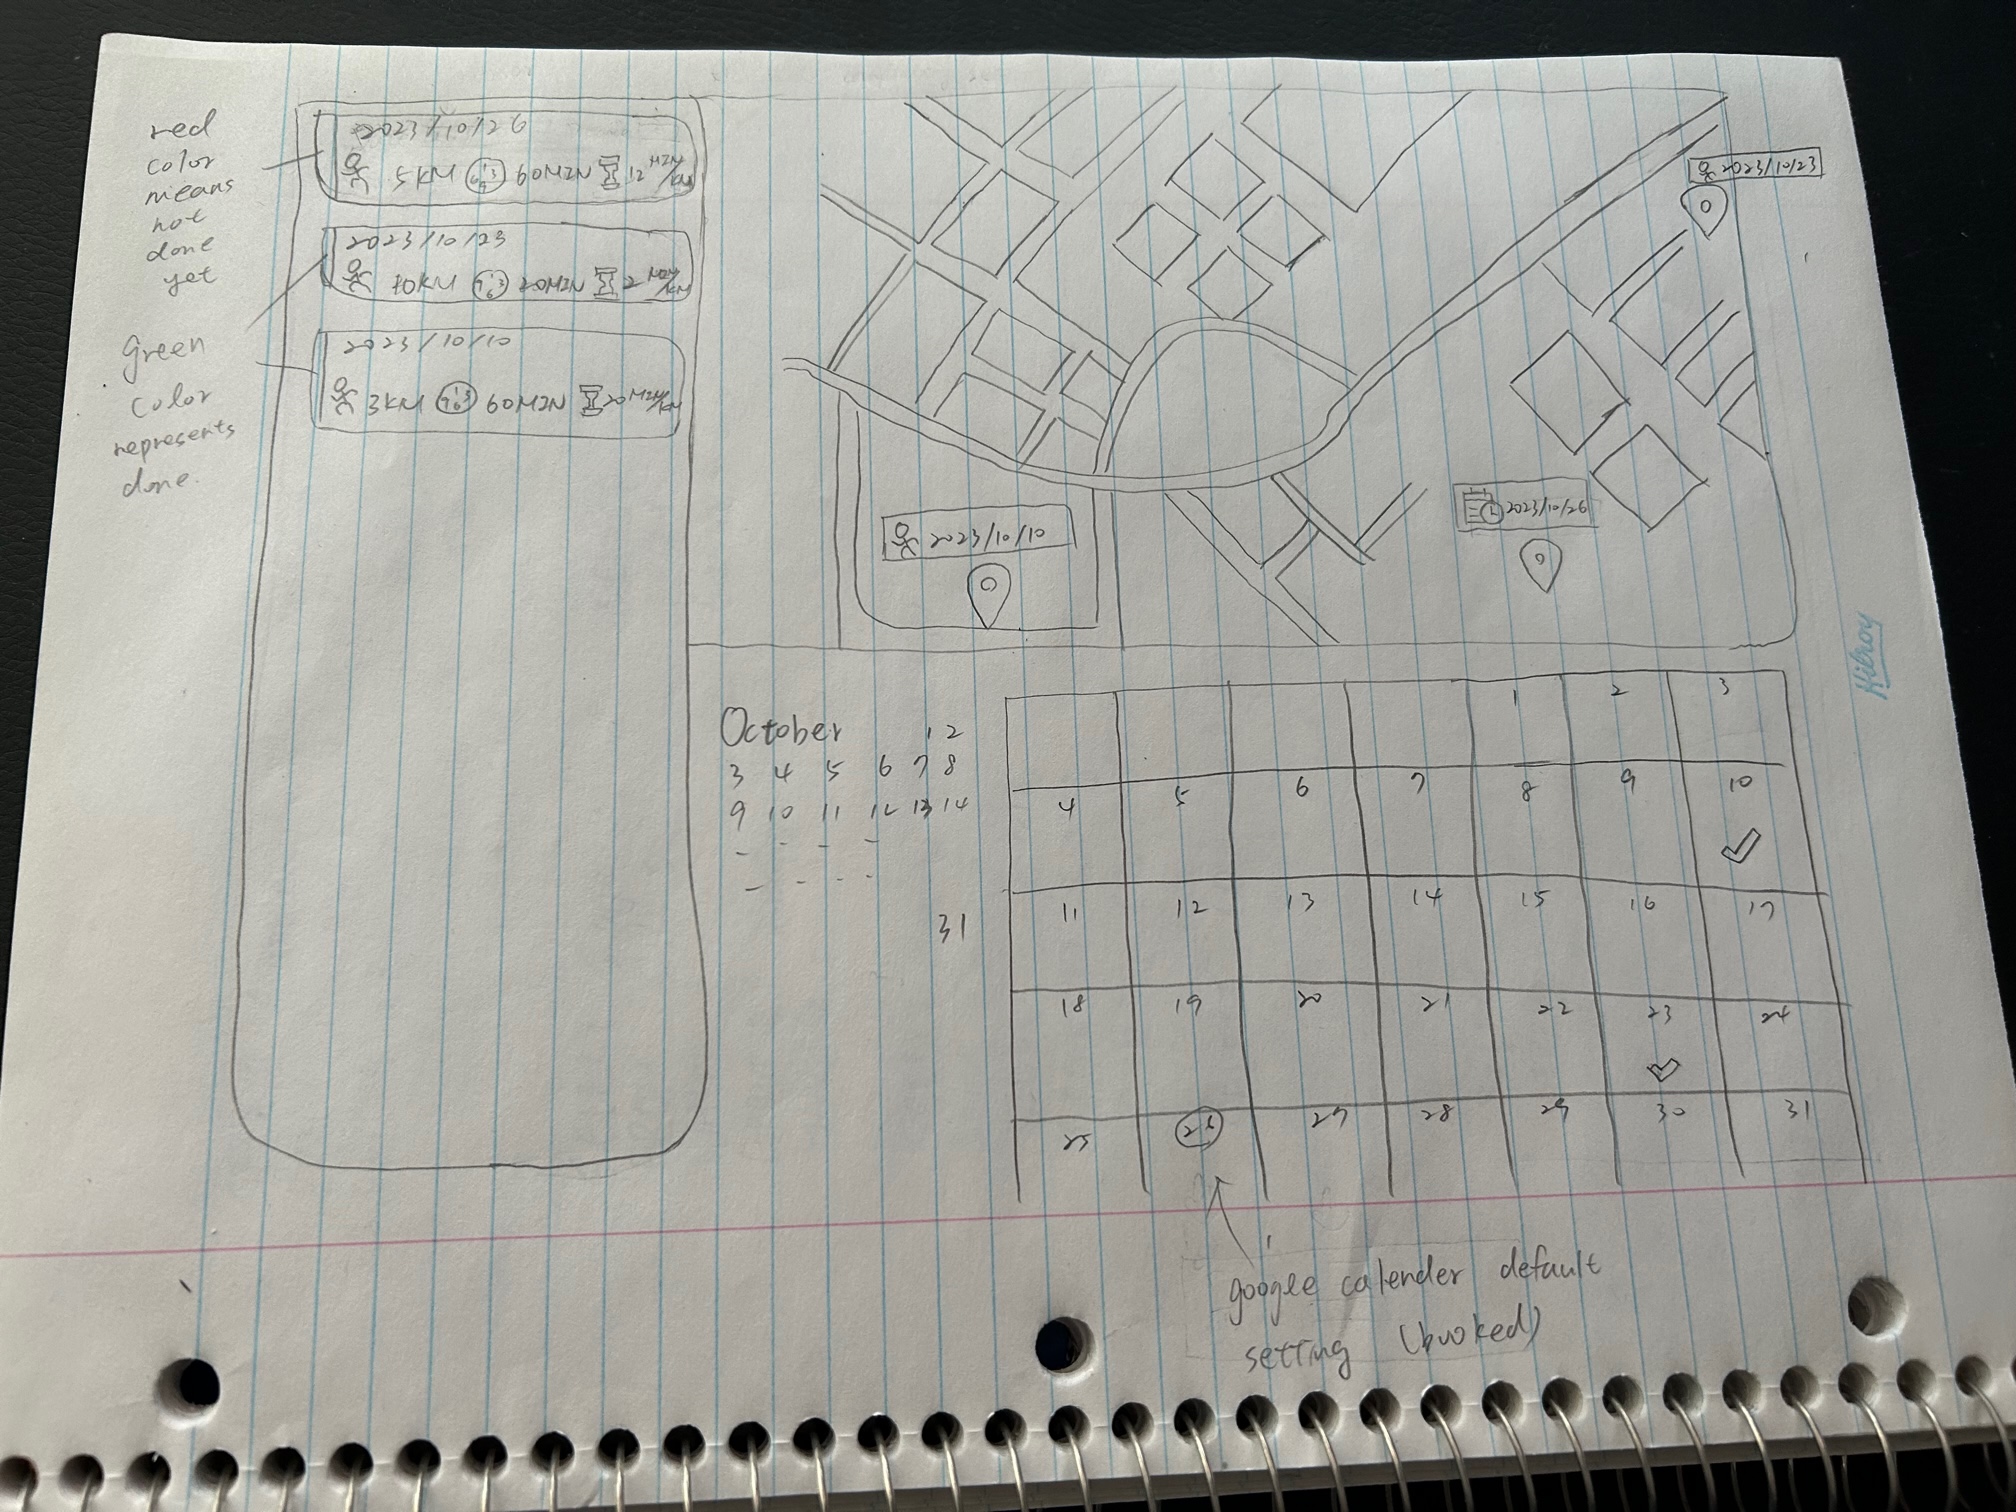 red
color
means
not
done
yet
Green
color
represents
done.
2023/10/26
5KM 60MIN 12 MIN/KM
2023/10/23
10KM 20MIN 2 MIN/KM
2023/10/10
3KM 60MIN 20MIN/KM
2023/10/23
2023/10/26
2023/10/10
Hilroy
October 1 2
3 4 5 6 7 8
9 10 11 12 13 14
31
1 2 3
4 5 6 7 8 9 10
11 12 13 14 15 16 17
18 19 20 21 22 23 24
25 26 27 28 29 30 31
google calender default
setting (booked)